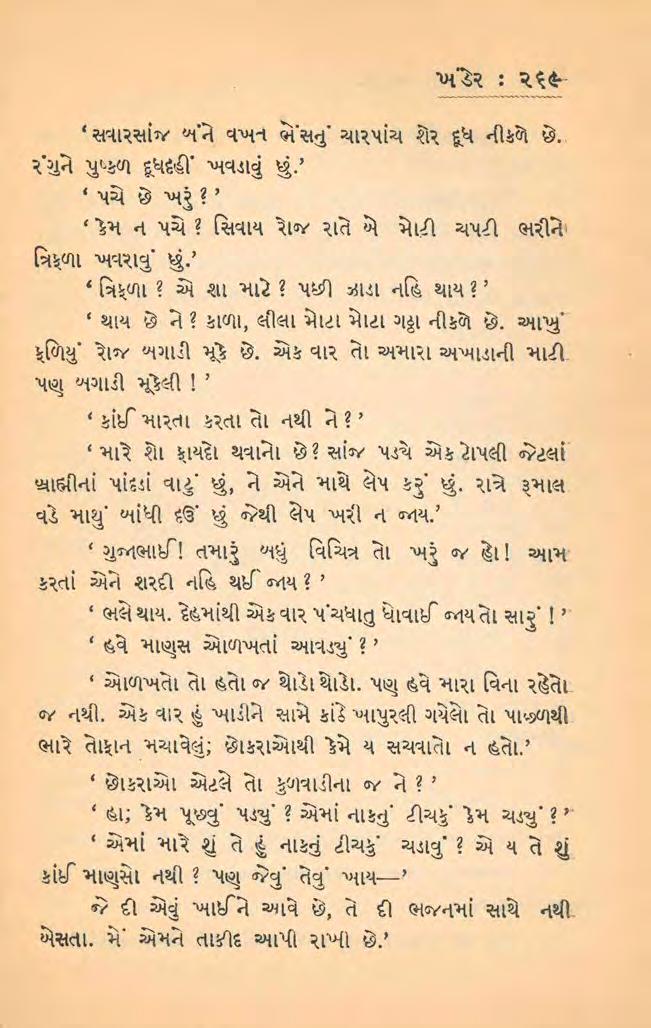 ખંડેર : ૨૬૯
‘સવારસાંજ બંને વખત ભેંસનું ચારપાંચ શેર દૂધ નીકળે છે.
રંગુને પુષ્કળ દૂધદહીં ખવડાવું છું.’
‘ પચે છે ખરું ? ’
‘ કેમ ન પચે ? સિવાય રોજ રાતે બે મોટી ચપટી ભરીને
ત્રિફળા ખવરાવું છું.’
‘ ત્રિફળા ? એ શા માટે ? પછી ઝાડા નહિ થાય ? ’
‘ થાય છે ને ? કાળા, લીલા મોટા મોટા ગઠ્ઠા નીકળે છે. આખું
ફળિયું રોજ બગાડી મૂકે છે. એક વાર તો અમારા અખાડાની માટી
પણ બગાડી મૂકેલી ! ’
‘ કાંઈ મારતા કરતા તો નથી ને ? ’
‘ મારે શો ફાયદો થવાનો છે ? સાંજ પડ્યે એક ટોપલી જેટલાં
બ્રાહ્મીનાં પાંદડાં વાટું છું, ને એને માથે લેપ કરું છું. રાત્રે રૂમાલ
વડે માથું બાંધી દઉં છું જેથી લેપ ખરી ન જાય.’
‘ ગુજાભાઈ! તમારું બધું વિચિત્ર તો ખરું જ હો! આમ
કરતાં એને શરદી નહિ થઈ જાય ? ’
‘ ભલે થાય. દેહમાંથી એક વાર પંચધાતુ ધોવાઈ જાય તો સારું ! ’
‘ હવે માણસ ઓળખતાં આવડ્યું ? ’
‘ ઓળખતો તો હતો જ થોડોથોડો. પણ હવે મારા વિના રહેતો
જ નથી. એક વાર હું ખાડીને સામે કાંઠે ખાપુરલી ગયેલો તો પાછળથી
ભારે તોફાન મચાવેલું; છોકરાઓથી કેમે ય સચવાતો ન હતો.’
‘ છોકરાઓ એટલે તો કુળવાડીના જ ને ? ’
‘ હા; કેમ પૂછવું પડ્યું ? એમાં નાકનું ટીચકું કેમ ચડ્યું ? ’
‘ એમાં મારે શું તે હું નાકનું ટીચકું ચડાવું ? એ ય તે શું
કાંઈ માણસો નથી ? પણ જેવું તેવું ખાય—’
જે દી એવું ખાઈને આવે છે, તે દી ભજનમાં સાથે નથી
બેસતા. મેં એમને તાકીદ આપી રાખી છે.’